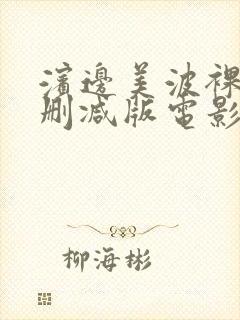 濱邊美波裸
删减版電影
柳海彬